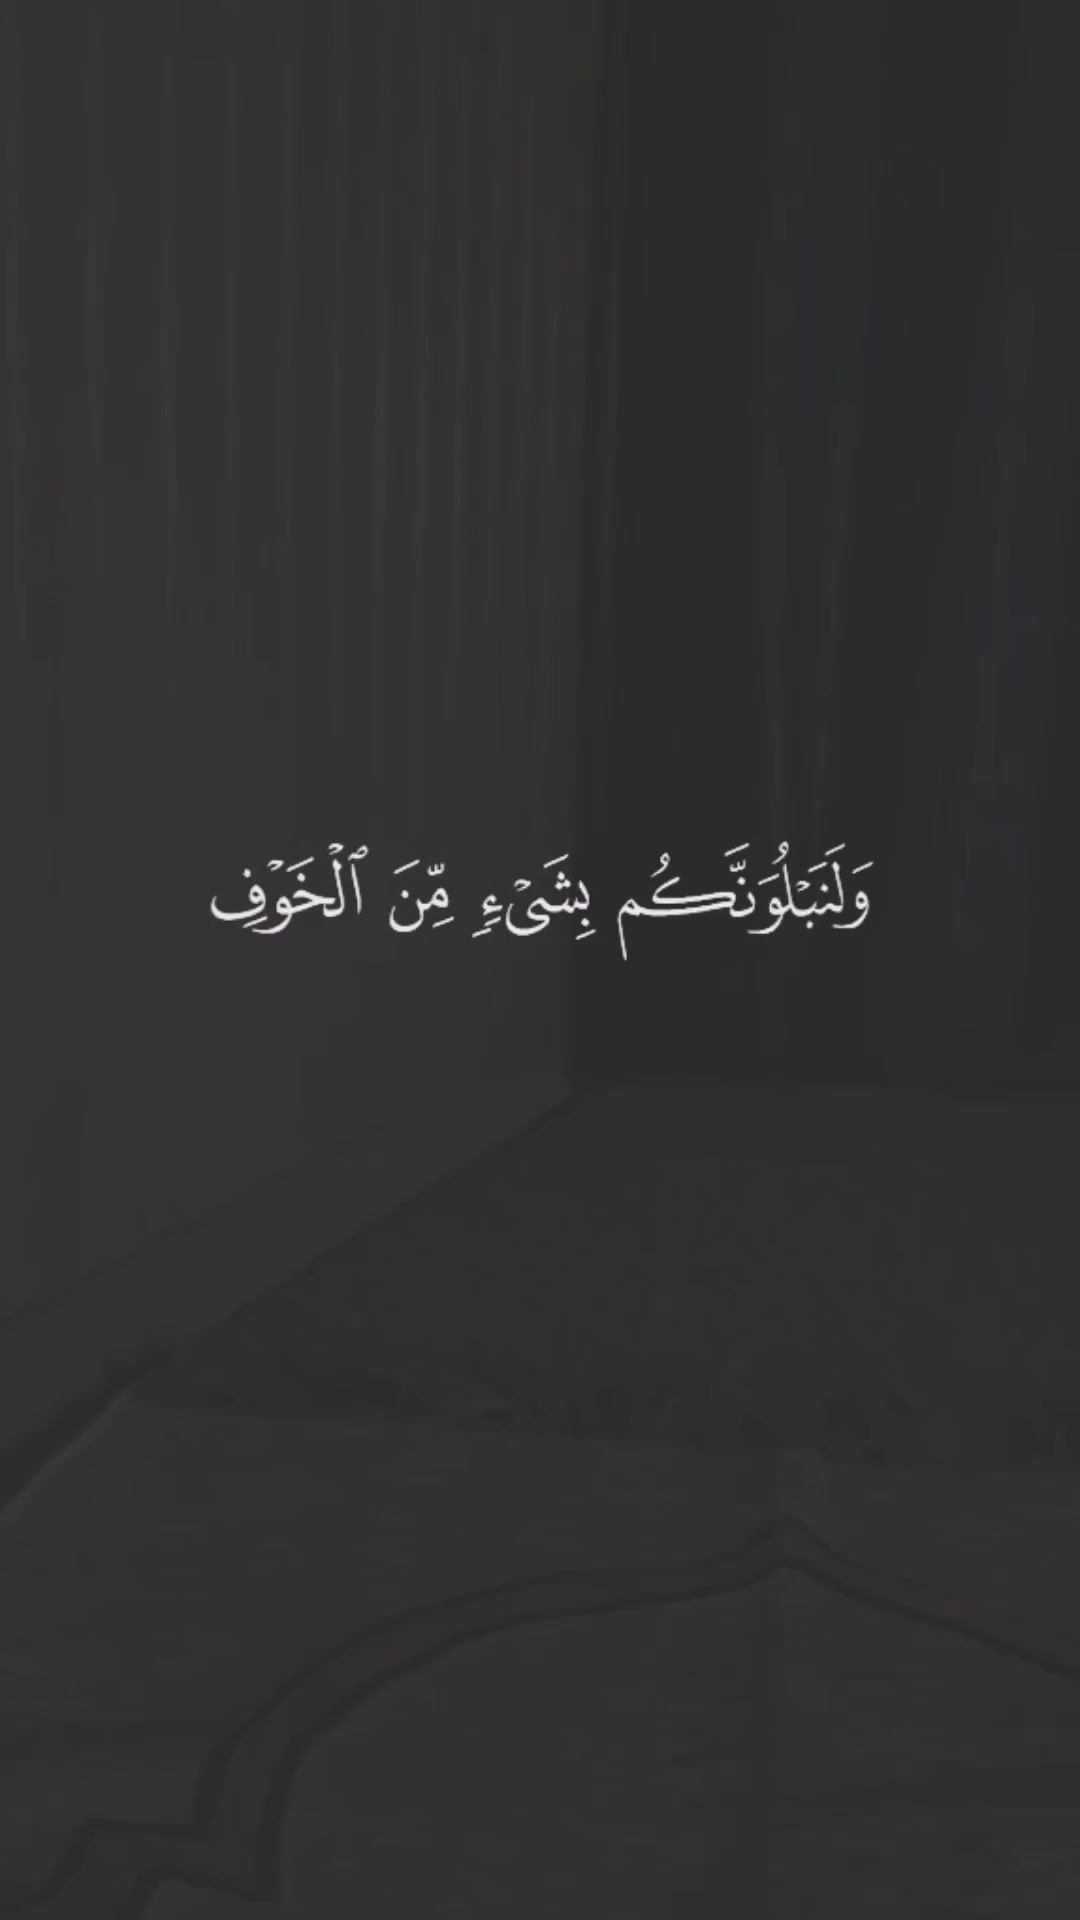 وَلَنَبۡلُوَنَّكُم بِشَيۡءٖ مِّنَ ٱلۡخَوۡفِ